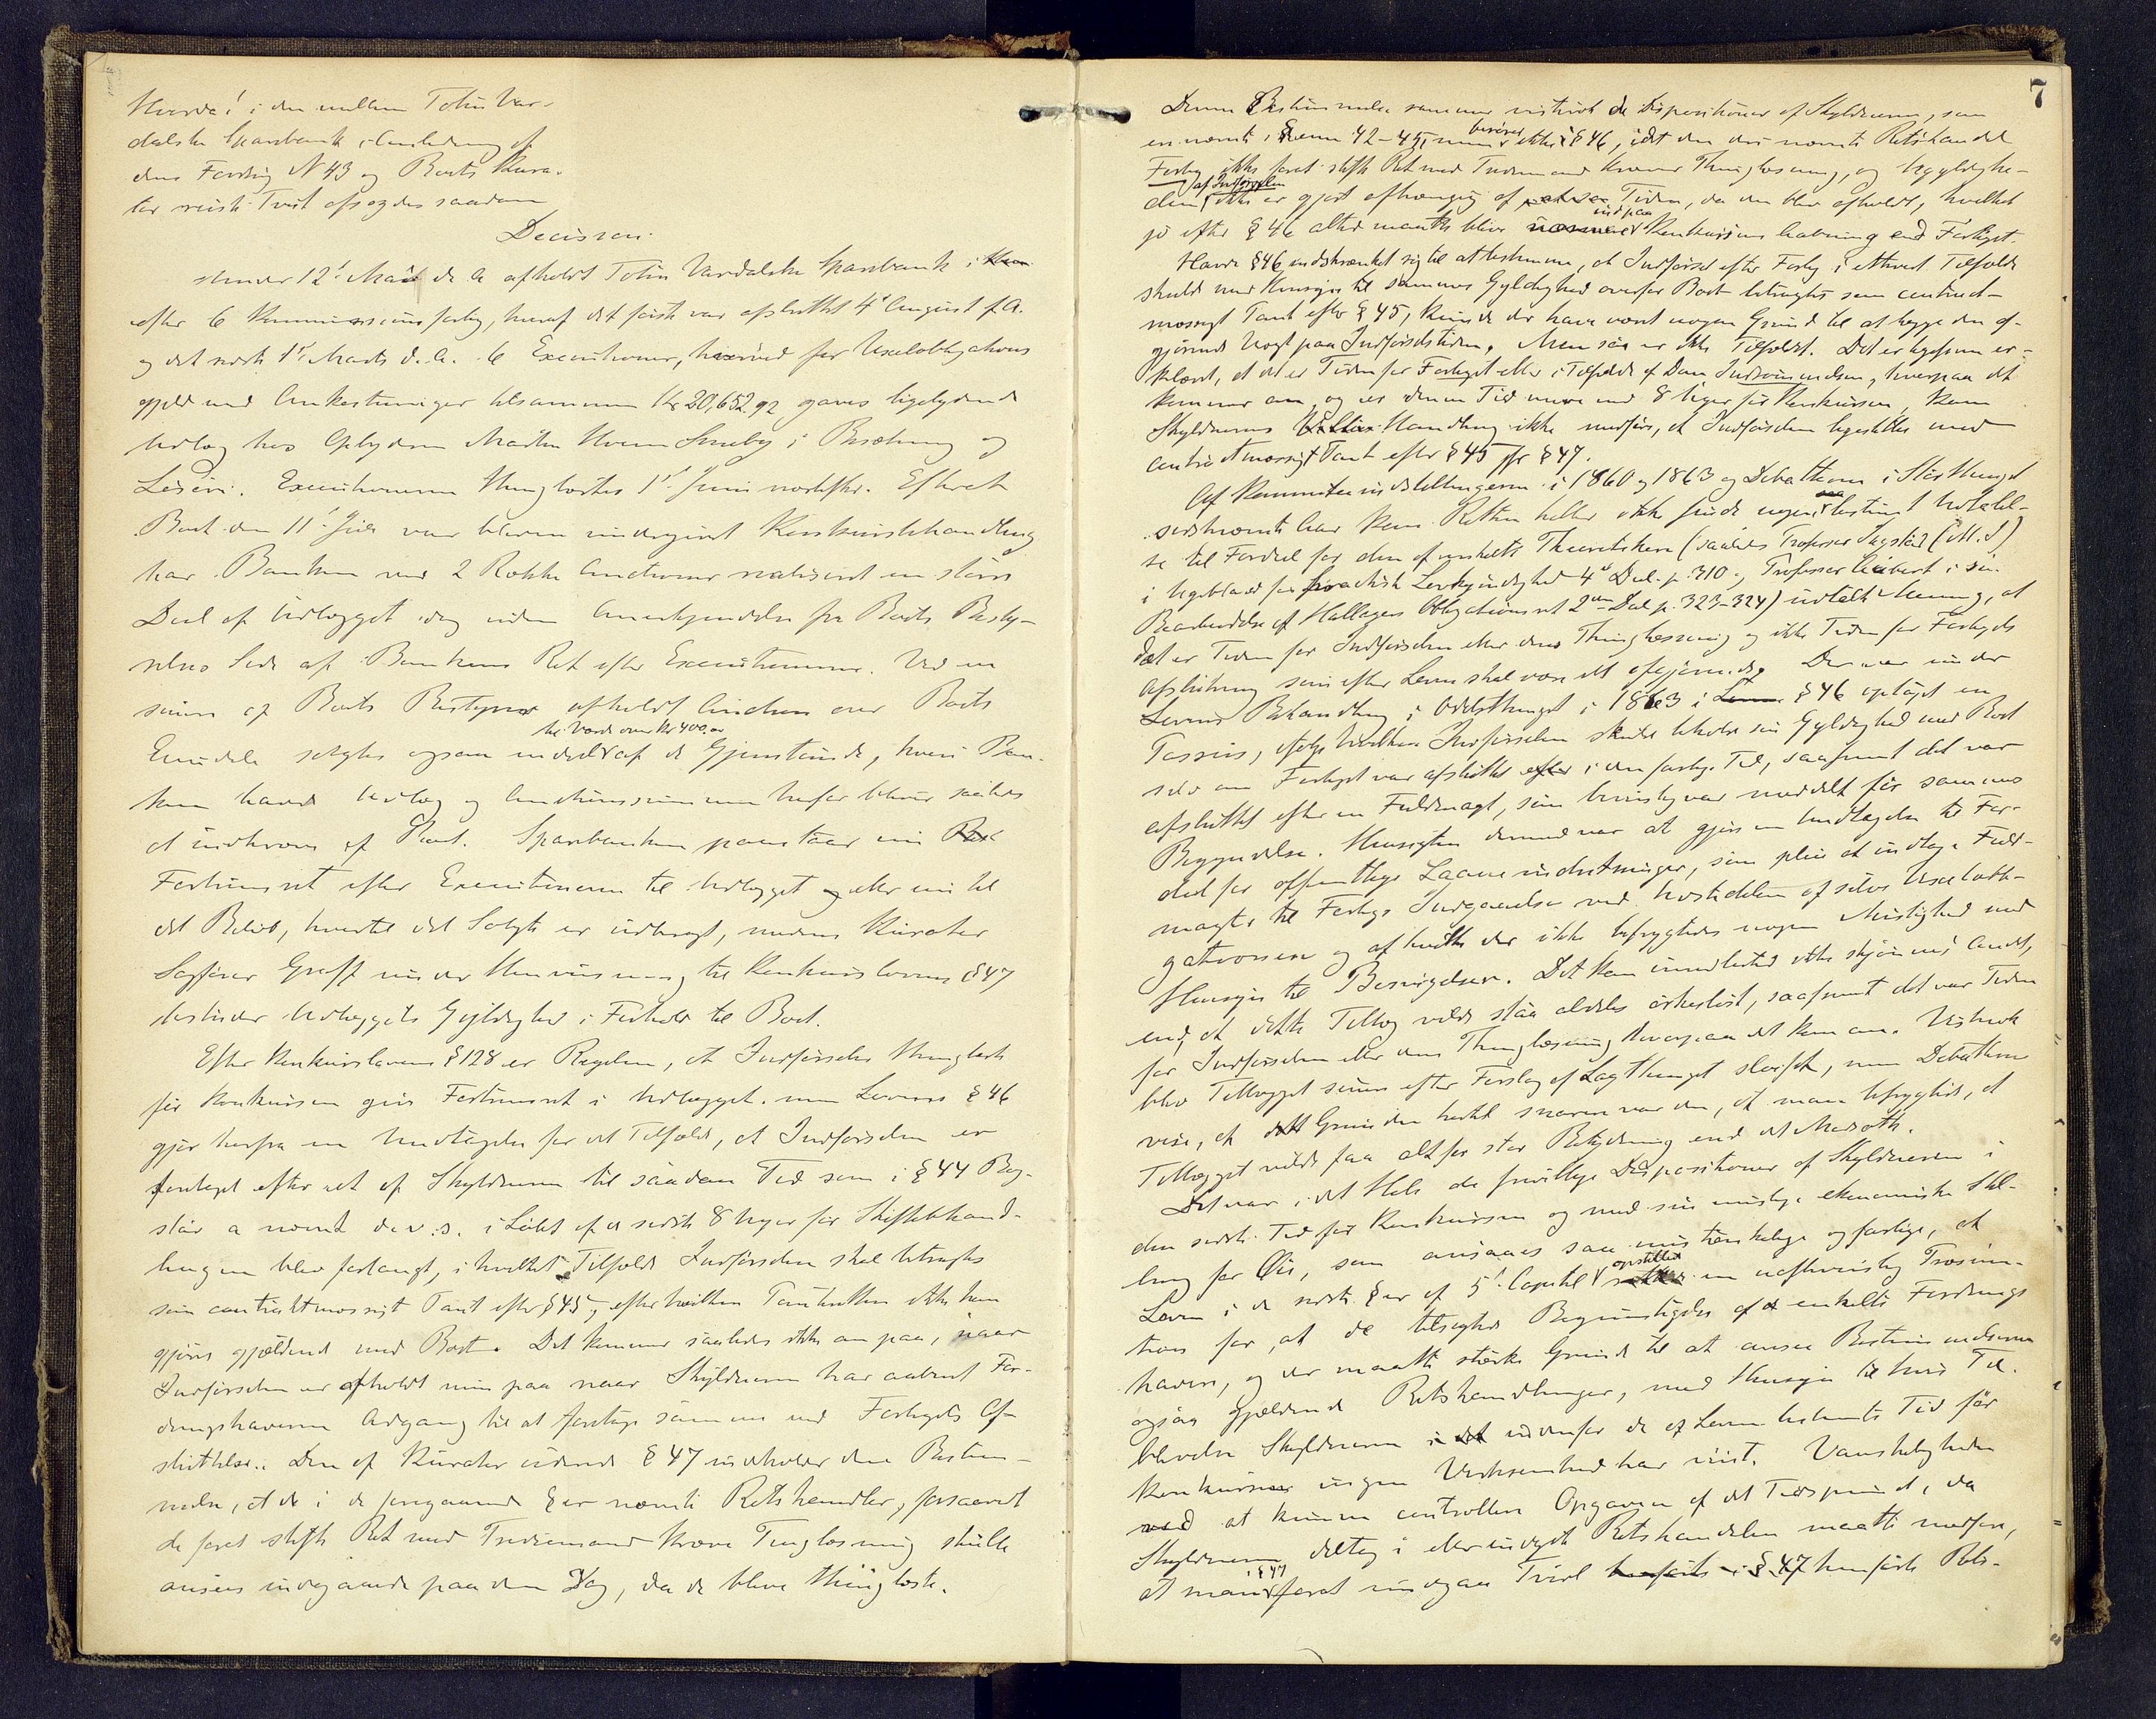 Hvorda! i den mellem Totens Var-
dalske Sparebank i Anledning af
dens Fordring N 43 og Boets Kura-
tor reiste Tvist afsagdes saadan
Decision.
Under 12' Mai d. A. afholdt Toten Vardalske Sparebank i
efter 6 Kommissionsforlig, hvoraf det første var afsluttet 4' August f. A.
og det sidste 1' Marts d. A. 6 Executioner, hvorved for Vexelobligations
gjeld med Omkostninger tilsammen Kr 20,652.92 gaves ligelydende
Udlæg hos Opbyderen Martin Hveem Smeby i Besætning og
Løsøre. Executionerne thinglæstes 1' Juni næstefter. Efterat
Boet den 11' Juli var bleven undergivet Konkursbehandling
har Banken ved 2 Rækker Auctioner realiseret en større
Deel af Udlægget dog uden Anerkjendelse fra Boets Besty-
relses Side af Bankens Ret efter Executionerne. Ved en
senere af Boets Bestyrer afholdt Auction over Boets
til Værdi over Kr 400,00
Eiendele solgtes ogsaa endel af de Gjenstande, hvori Ban-
ken havde Udlæg og Auctionssummen herfor bliver saaledes
at indkræve af Boet. Sparebanken paastaar nu
Fortrinsret efter Executionerne til Udlægget og eller nu til
det Beløb, hvortil det Solgte er udbragt, medens Kurator
Sagfører Graff under Henvisning til Konkurslovens § 47
bestrider Udlæggets Gyldighed i Forhold til Boet.
Efter Konkurslovens § 128 er Regelen, at Indførseler thinglæst
før Konkursen giver Fortrinsret i Udlægget. men Lovens § 46
gjør herfra en Undtagelse for det Tilfælde, at Indførselen er
foretaget efter et af Skyldneren til saadan Tid som i § 44 Bog-
stav a nævnt d. v. s. i Løbet af de sidste 8 Uger før Skiftebehand-
lingen blev forlangt, i hvilket Tilfælde Indførselen skal betragtes
som contraktmæssigt Pant efter § 45, efter hvilken Panteretten ikke kan
gjøres gjældende mod Boet. Det kommer saaledes ikke an paa, naar
Indførselen er afholdt men paa naar Skyldneren har aabnet For-
dringshaveren Adgang til at foretage samme ved Forligets Af-
sluttelse. Den af Kurator citerede § 47 indeholder den Bestem-
melse, at de i de foregaaende §§er nævnte Retshandler, forsaavidt
de forat stifte Ret mod Trediemand kræve Tinglæsning skulle
ansees indgaaede paa den Dag, da de bleve thinglæste.
7
Denne Bestemmelse rammer vistnok de Dispositioner af Skyldneren, som
ere nævnte i §§erne 42-45, men berører ikke § 46, idet den der nævnte Retshandel
Forlig ikke forat stifte Ret mod Trediemand kræver Thinglæsning, og Ugyldighe-
den af Indførselen ikke er gjort afhængig af Tiden, da den blev afholdt, hvilket
jo efter § 46 altid maatte blive ind paa Konkursens Aabning end Forliget.
Havde § 46 indskrænket sig til at bestemme, at Indførsel efter Forlig i ethvert Tilfælde
skulde med Hensyn til sammes Gyldighed overfor Boet betragtes som contract-
mæssigt Pant efter § 45, kunde der have været nogen Grund til at lægge den af-
gjørende Vægt paa Indførselstiden. Men saa er ikke Tilfældet. Det er ligefrem er-
klæret, at det er Tiden for Forliget eller i Tilfælde af Dom Indrømmelsen, hvorpaa det
kommer an, og er denne Tid mere end 8 Uger før Konkursen, kan
Skyldnerens Handling ikke medføre, at Indførselen ligestilles med
contractmæssigt Pant efter § 45 jfr § 47.
Af Kommiteeindstillingerne i 1860 og 1863 og Debatterne i Storthinget
sidstnævnte Aar kan Retten heller ikke finde nogen saa bestemt Udtalel-
se til Fordel for den af enkelte Theoretikere (saaledes Professor Ingstad (M. I)
i Ugeblad for practisk Lovkyndighed 4' Deel p. 310 og Professor Aubert i sin
Bearbeidelse af Hallagers Obligationsret 2den Deel p. 323-324) udtalte Mening, at
det er Tiden for Indførselen eller dens Thinglæsning og ikke Tiden for Forligets
Afslutning som efter Loven skal være det afgjørende. Der var under
Lovens Behandling i Odelsthinget i 1863 i § 46 optaget en
Passus, ifølge hvilken Indførselen skulde beholde sin Gyldighed mod Boet
selv om Forliget var afsluttet i den farlige Tid, saafremt det var
afsluttet efter en Fuldmagt, som beviislig var meddelt før sammes
Begyndelse. Hensigten dermed var at gjøre en Undtagelse til For-
del for offentlige Laaneindretninger, som pleie at indtage Fuld-
magter til Forligs Indgaaelse ved Udstedelsen af selve Vexelobli-
gationen og af hvilke der ikke befrygtedes nogen Misligheder med
Hensyn til Besvigelser. Det kan imidlertid ikke skjønnes Andet,
end at dette Tillæg vilde staa aldeles ørkesløst, saafremt det var Tiden
for Indførselen eller dens Thinglæsning hvorpaa det kom an. Vistnok
blev Tillægget senere efter Forslag af Lagthinget sløifet, men Debatterne
vise, at Grunden hertil snarere var den, at man befrygtede, at
Tillægget vilde faa altfor stor Betydning end det Modsatte.
Det var i det Hele de frivillige Dispositioner af Skyldneren i
den sidste Tid før Konkursen og med sin mislige økonomiske Stil-
ling for Øie, som ansaaes saa mistænkelige og farlige, at
Loven i de sidste §§er af 5' Capitel opstilled en uafbeviselig Præsum-
tion for, at de tilsigtede Begunstigelse af enkelte Fordrings
havere, og der maatte stærke Grunde til at ansee Bestemmelserne
ogsaa gjældende Retshandlinger, med Hensyn til hvis Til-
blivelse Skyldneren udenfor de af Loven bestemte Tid før
Konkursen ingen Virksomhed har viist. Vanskeligheden
ved at kunne controllere Opgaven af det Tidspunkt, da
Skyldneren deltog i eller indgik Retshandelen maatte medføre,
at man i § 47 forat undgaa Tvivl henførte Rets-